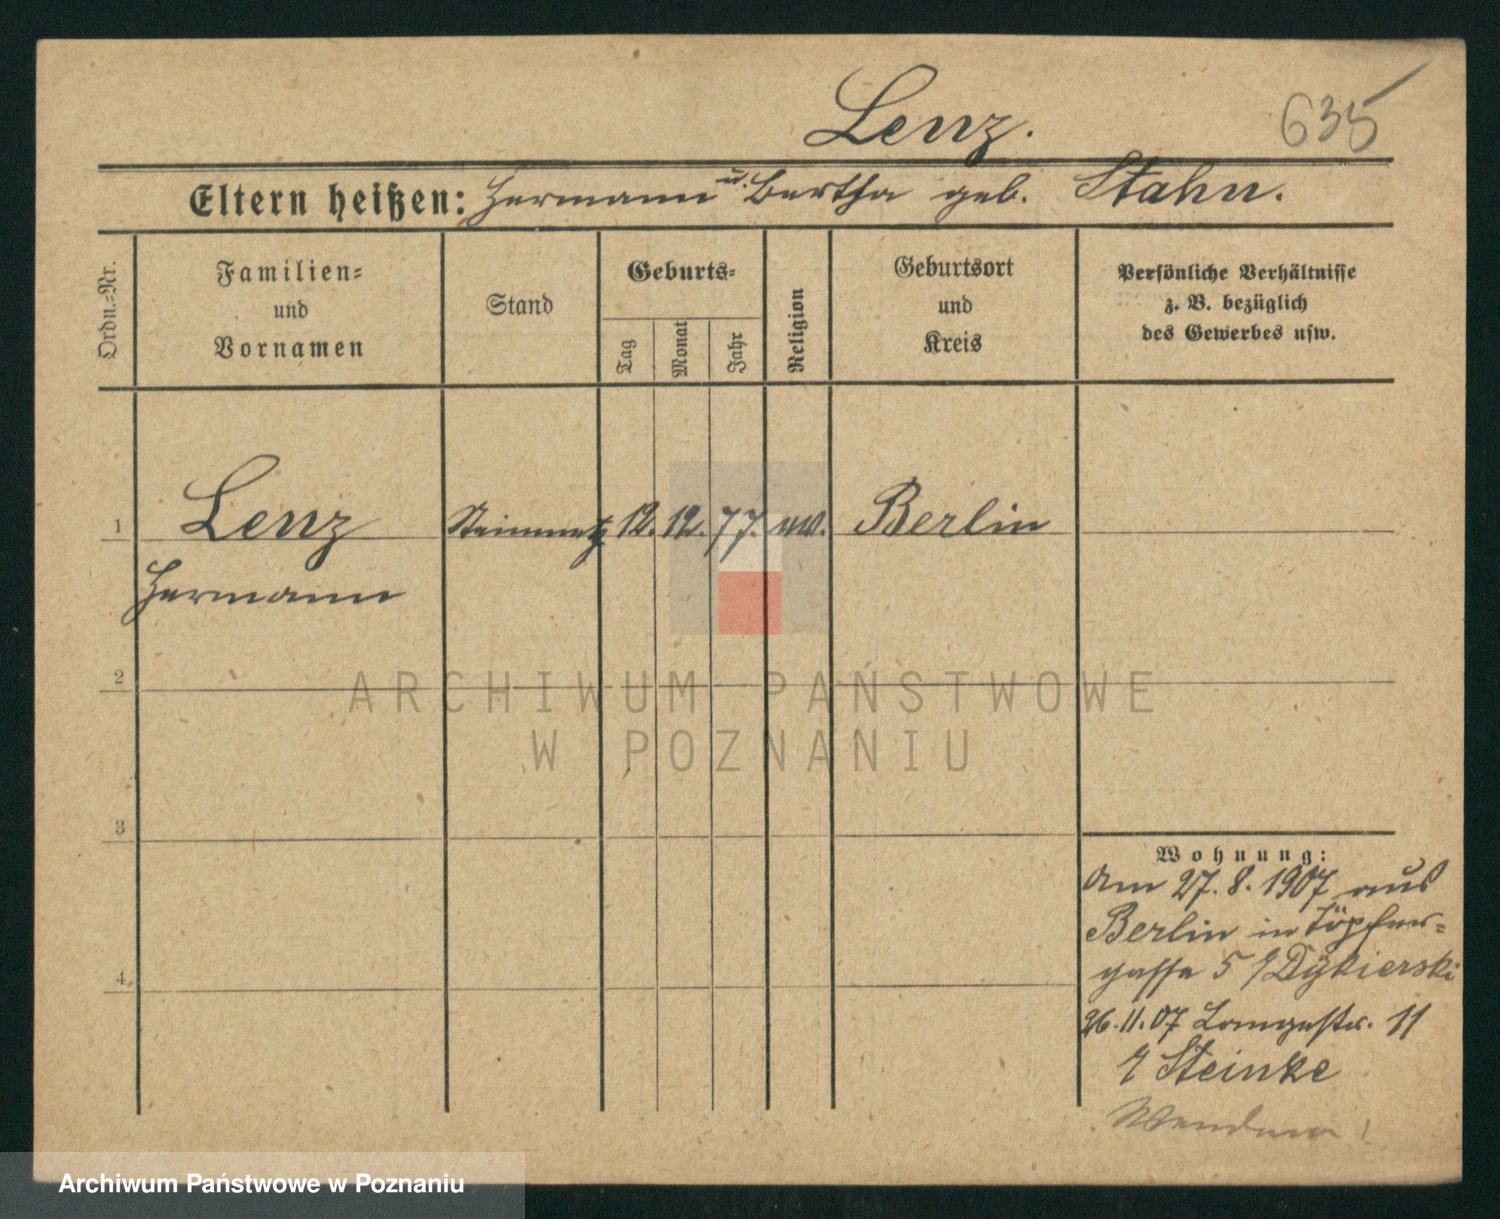 Lenz.
635
Eltern heißen: Hermann u. Bertha geb. Stahn.
Ordn.-Nr.
Familien-
und
Vornamen
Stand
Geburts-
Tag
Monat
Jahr
Religion
Geburtsort
und
Kreis
Persönliche Verhältnisse
z. B. bezüglich
des Gewerbes usw.
1 Lenz Steinmetz 12. 12. 77. ev. Berlin
Hermann
2
ARCHIWUM PAŃSTWOWE
W POZNANIU
3
Wohnung:
Am 27.8.1907 aus
Berlin in Töpfer-
gasse 5 Dykierski
4
26.11.07 Langestr. 11
Steinke
Wenden!
Archiwum Państwowe w Poznaniu